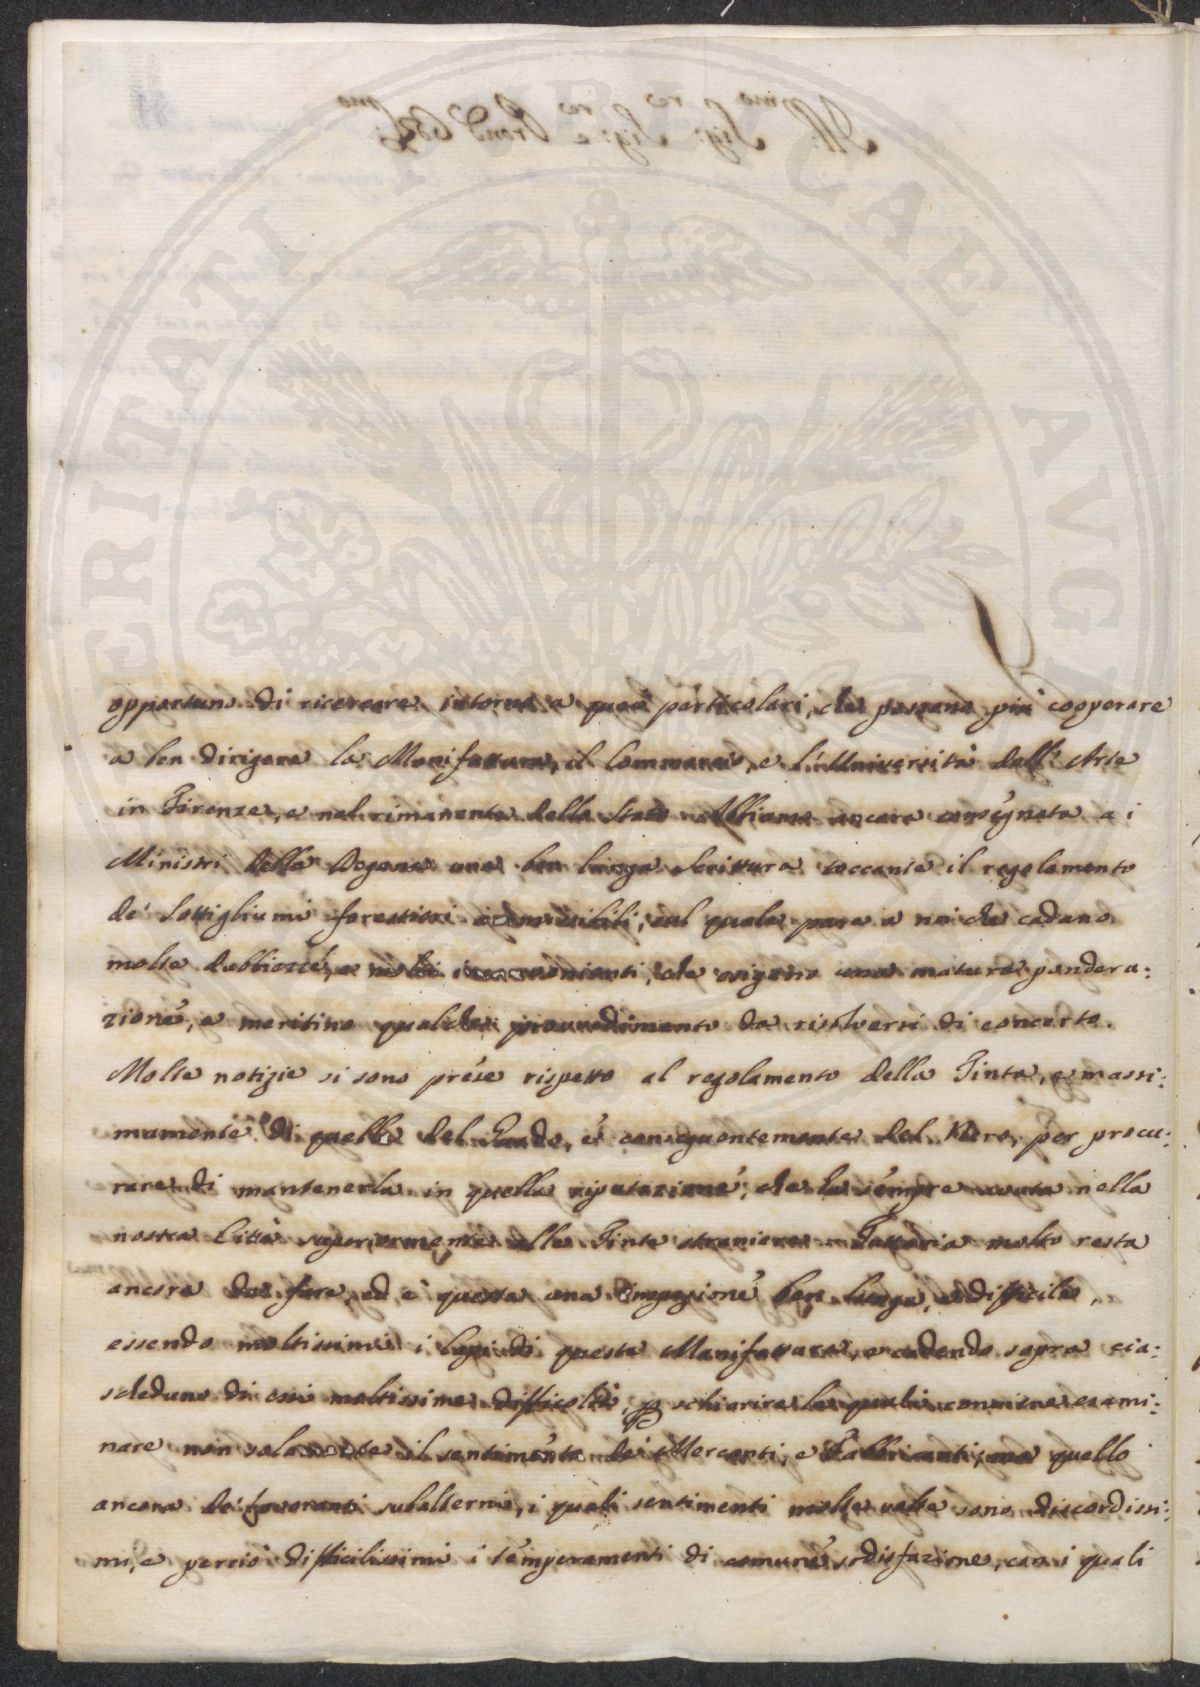 VERITATI PVBLICAE AVGE
opportuno di ricercare intorno a quei particolari, che possano più cooperare
a ben dirigere la Manifattura, il Commercio, e l'Università dell'Arte
in Firenze, e nel rimanente dello Stato. Abbiamo ancora consegnata a i
Ministri della Dogana una ben lunga Scrittura toccante il regolamento
de' Sottigliumi forestieri ammissibili, sul quale pare a noi che cadano
molte dubbiezze, e molti inconvenienti, che esigono una matura pondera:
zione, e meritino qualche provvedimento da risolversi di concerto.
Molte notizie si sono prese rispetto al regolamento della Tinta, e massi:
mamente di quella del Guado, e conseguentemente del Nero, per procu:
rare di mantenerla in quella riputazione, che ha sempre avuta nella
nostra Città superiormente alle Tinte straniere. Tuttavia molto resta
ancora da fare, ed è questa una Imposizione ben lunga, e difficile,
essendo moltissimi i Capi di questa Manifattura, e cadendo sopra cia:
scheduno di essi moltissime difficoltà, p schiarire le quali conviene esami:
nare non solamente il sentimento de' Mercanti, e Fabbricanti, ma quello
ancora de' lavoranti subalterni, i quali sentimenti molte volte sono discordissi:
mi, e perciò difficilissimi i temperamenti di comune sodisfazione, con i quali